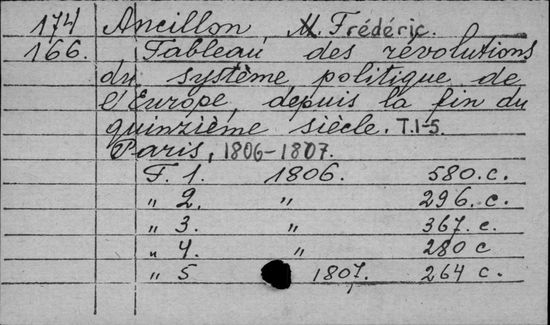 174 Ancillon, M. Frédéric.
166. Tableau des révolutions
du système politique de
l'Europe, depuis la fin du
quinzième siècle. T.1-5.
Paris, 1806-1807.
T. 1. 1806. 580 c.
„ 2. „ 296. c.
„ 3. „ 367. c.
„ 4. „ 280 c
„ 5 1807. 264 c.